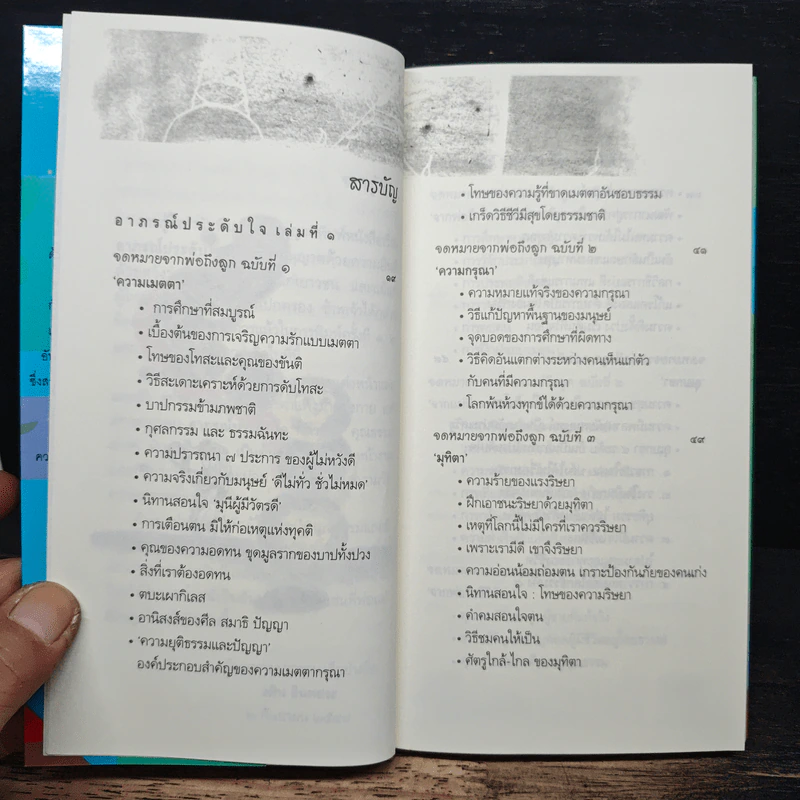 สารบัญ
อาภรณ์ประดับใจ เล่มที่ ๑
จดหมายจากพ่อถึงลูก ฉบับที่ ๑ ๑๙
'ความเมตตา'
• การศึกษาที่สมบูรณ์
• เบื้องต้นของการเจริญความรักแบบเมตตา
• โทษของโทสะและคุณของขันติ
• วิธีสะเดาะเคราะห์ด้วยการดับโทสะ
• บาปกรรมข้ามภพชาติ
• กุศลกรรม และ ธรรมฉันทะ
• ความปรารถนา ๗ ประการ ของผู้ไม่หวังดี
• ความจริงเกี่ยวกับมนุษย์ 'ดีไม่ทั่ว ชั่วไม่หมด'
• นิทานสอนใจ 'มุนีผู้มีวัตรดี'
• การเตือนตน มิให้ก่อเหตุแห่งทุคติ
• คุณของความอดทน ขุดมูลรากของบาปทั้งปวง
• สิ่งที่เราต้องอดทน
• ตบะเผากิเลส
• อานิสงส์ของศีล สมาธิ ปัญญา
• 'ความยุติธรรมและปัญญา'
องค์ประกอบสำคัญของความเมตตากรุณา
• โทษของความรู้ที่ขาดเมตตาอันชอบธรรม
• เกร็ดวิธีชีวีมีสุขโดยธรรมชาติ
จดหมายจากพ่อถึงลูก ฉบับที่ ๒ ๔๑
'ความกรุณา'
• ความหมายแท้จริงของความกรุณา
• วิธีแก้ปัญหาพื้นฐานของมนุษย์
• จุดบอดของการศึกษาที่ผิดทาง
• วิธีคิดอันแตกต่างระหว่างคนเห็นแก่ตัว
กับคนที่มีความกรุณา
• โลกพ้นห้วงทุกข์ได้ด้วยความกรุณา
จดหมายจากพ่อถึงลูก ฉบับที่ ๓ ๔๙
'มุทิตา'
• ความร้ายของแรงริษยา
• ฝึกเอาชนะริษยาด้วยมุทิตา
• เหตุที่โลกนี้ไม่มีใครที่เราควรริษยา
• เพราะเรามีดี เขาจึงริษยา
• ความอ่อนน้อมถ่อมตน เกราะป้องกันภัยของคนเก่ง
• นิทานสอนใจ : โทษของความริษยา
• คำคมสอนใจตน
• วิธีชมคนให้เป็น
• ศัตรูใกล้-ไกล ของมุทิตา